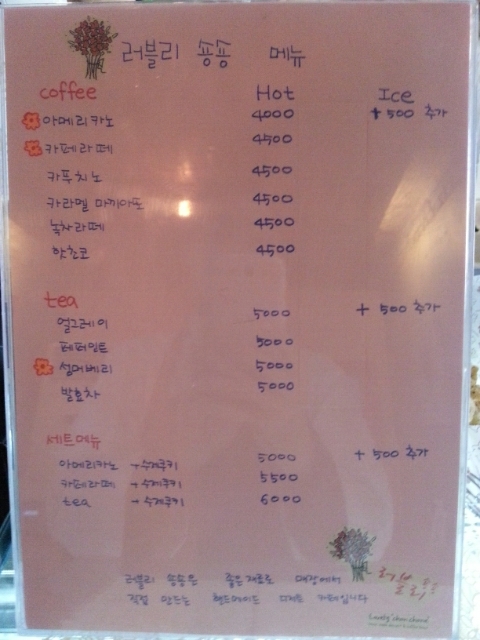 러블리 숑숑 메뉴
coffee Hot Ice
아메리카노 4000 +500 추가
카페라떼 4500
카푸치노 4500
카라멜 마끼아또 4500
녹차라떼 4500
핫초코 4500
tea
얼그레이 5000 + 500 추가
페퍼민트 5000
썸머베리 5000
발효차 5000
세트메뉴
아메리카노 +수제쿠키 5000 + 500 추가
카페라떼 +수제쿠키 5500
tea +수제쿠키 6000
러블리 숑숑은 좋은 재료로 매장에서
직접 만드는 핸드메이드 디저트 카페입니다